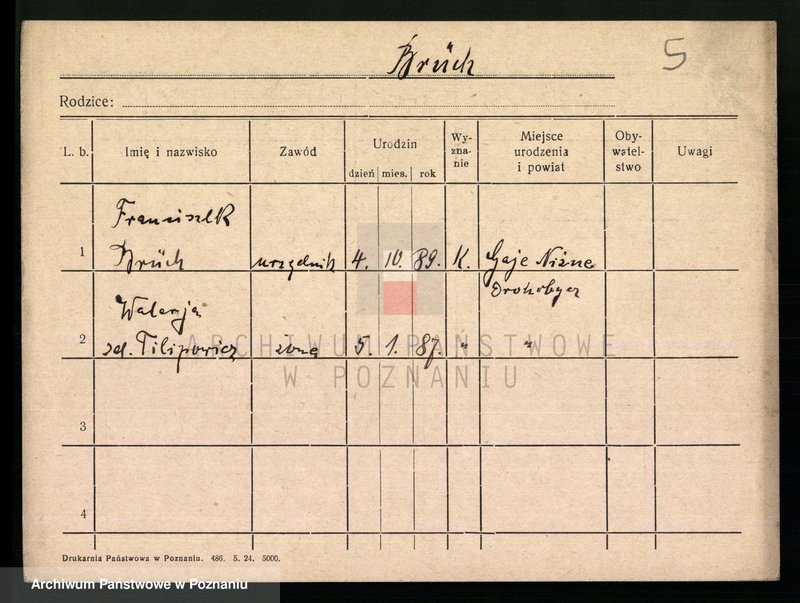 Brüch
5
Rodzice:
L. b. Imię i nazwisko Zawód Urodzin dzień mies. rok Wy-zna-nie Miejsce urodzenia i powiat Oby-watel-stwo Uwagi
Franciszek
1 Brüch urzędnik 4. 10. 89. K. Gaje Niżne
Drohobycz
Walerja
2 zd. Filipowicz żona 5. 1. 87. " "
3
4
ARCHIWUM PAŃSTWOWE
W POZNANIU
Drukarnia Państwowa w Poznaniu. 486. 5. 24. 5000.
Archiwum Państwowe w Poznaniu